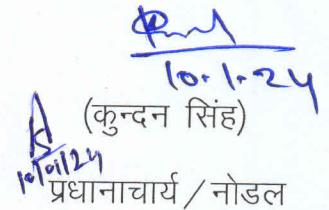 10.1.24
(कुन्दन सिंह)
10/01/24
प्रधानाचार्य / नोडल